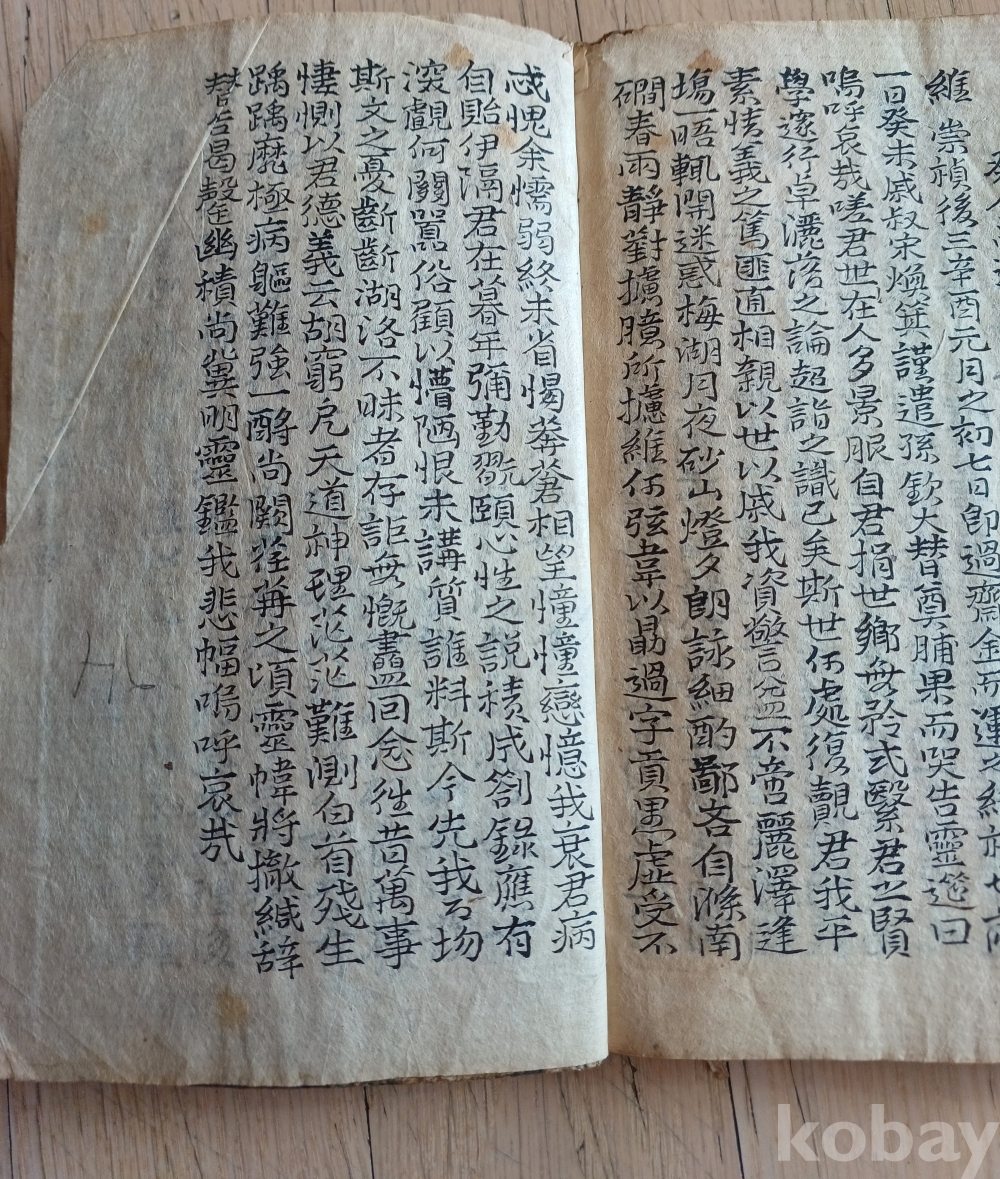 維 崇禎後三辛酉元月之初七日卽過齋金而運之
一日癸未戚叔宋煥箕謹遣孫欽大替奠脯果而哭告靈筵曰
嗚呼哀哉嗟君世在人多景服自君捐世鄉無矜式繄君之賢
學邃行卓灑落之論超詣之識已矣斯世何處復覿君我平
素情義之篤匪直相親以世以戚我資警益不啻麗澤逢
場一晤輒開迷惑梅湖月夜砂山燈夕朗詠細酌鄙吝自滌南
磵春雨靜對攄臆所攄維何弦韋以勗過字貢愚虛受不
忒愧余懦弱終未省惕莽蒼相望憧憧戀憶我衰君病
自貽伊隔君在暮年彌勤翫頤心性之說積成箚錄應有
深覷何關囂俗顧以懵陋恨未講質誰料斯今先我
斯文之憂齗齗湖洛不昧者存詎無慨衋回念往昔萬事
悽惻以君德義云胡窮戹天道神理茫茫難測白首殘生
踽踽靡極病軀難強一酹尚闕荏苒之頃靈幃將撤緘辭
替告曷罄幽積尚冀明靈鑑我悲幅嗚呼哀哉
kobay